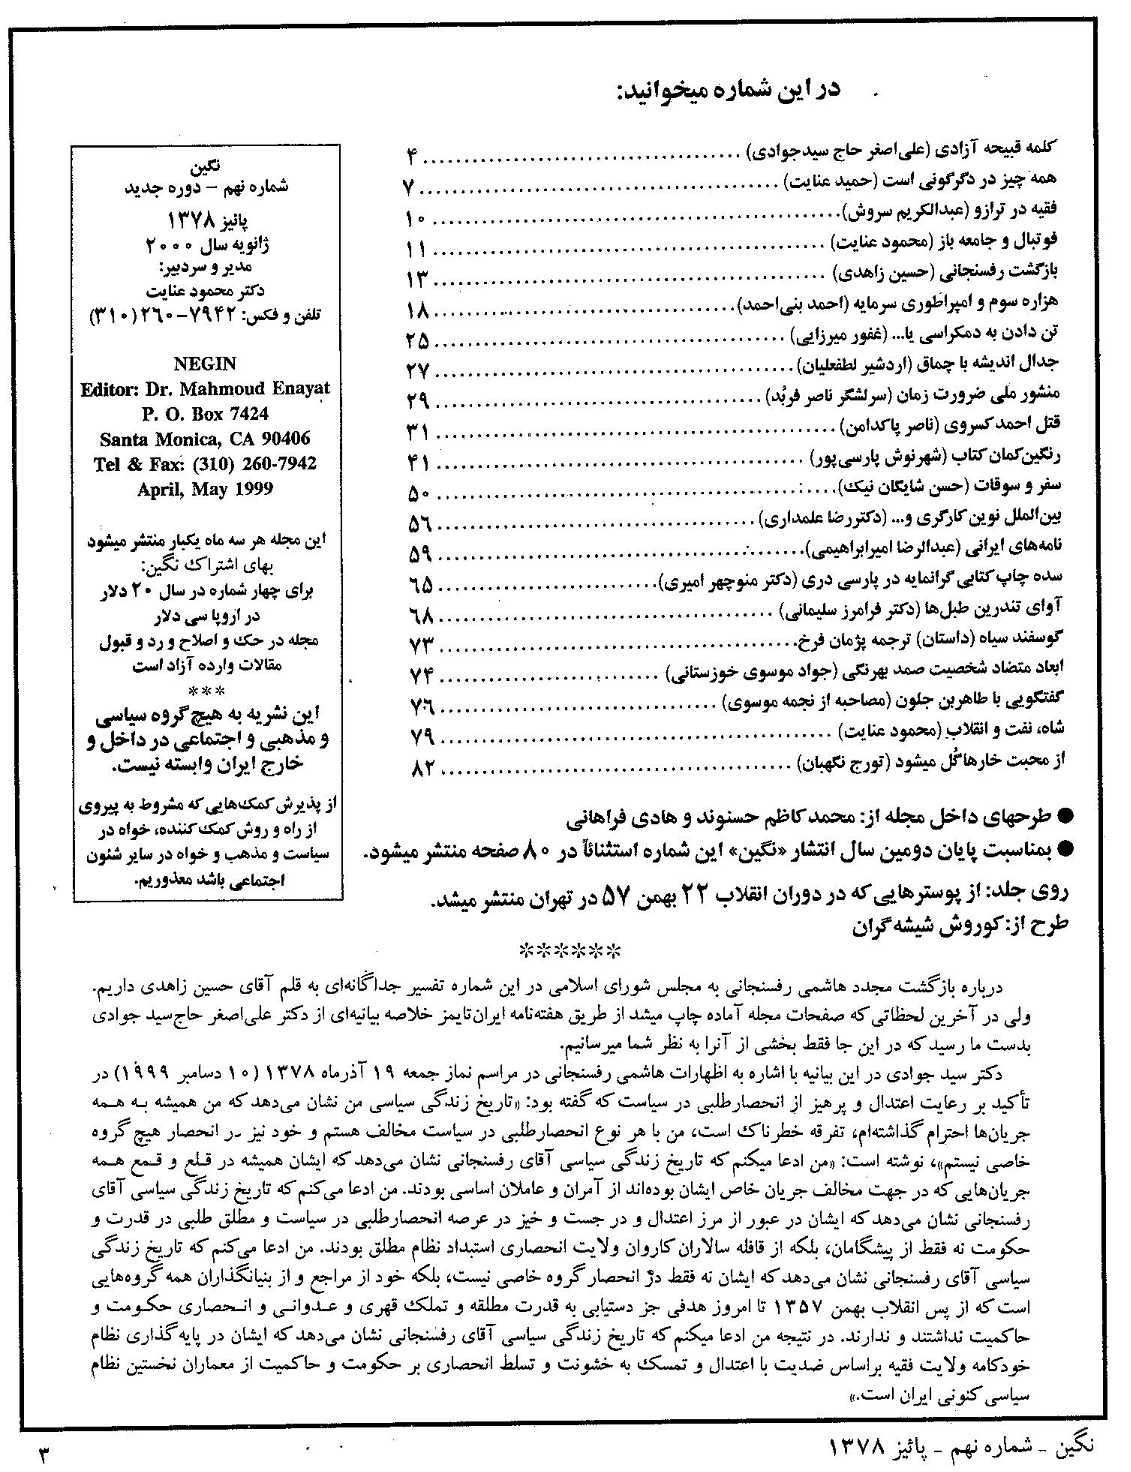 در این شماره میخوانید:
کلمه قبیحه آزادی (علی‌اصغر حاج سیدجوادی) ........ ۴
همه چیز در دگرگونی است (حمید عنایت) ........ ۷
فقیه در ترازو (عبدالکریم سروش) ........ ۱۰
فوتبال و جامعه باز (محمود عنایت) ........ ۱۱
بازگشت رفسنجانی (حسین زاهدی) ........ ۱۳
هزاره سوم و امپراطوری سرمایه (احمد بنی‌احمد) ........ ۱۸
تن دادن به دمکراسی یا... (غفور میرزایی) ........ ۲۵
جدال اندیشه با چماق (اردشیر لطفعلیان) ........ ۲۷
منشور ملی ضرورت زمان (سرلشگر ناصر فربُد) ........ ۲۹
قتل احمد کسروی (ناصر پاکدامن) ........ ۳۱
رنگین‌کمان کتاب (شهرنوش پارسی‌پور) ........ ۴۱
سفر و سوقات (حسن شایگان نیک) ........ ۵۰
بین‌الملل نوین کارگری و... (دکتررضا علمداری) ........ ۵۶
نامه‌های ایرانی (عبدالرضا امیرابراهیمی) ........ ۵۹
سده چاپ کتابی گرانمایه در پارسی دری (دکتر منوچهر امیری) ........ ۶۵
آوای تندرین طبل‌ها (دکتر فرامرز سلیمانی) ........ ۶۸
گوسفند سیاه (داستان) ترجمه پژمان فرخ ........ ۷۳
ابعاد متضاد شخصیت صمد بهرنگی (جواد موسوی خوزستانی) ........ ۷۴
گفتگویی با طاهربن جلون (مصاحبه از نجمه موسوی) ........ ۷۶
شاه، نفت و انقلاب (محمود عنایت) ........ ۷۹
از محبت خارها گُل میشود (تورج نگهبان) ........ ۸۲
● طرحهای داخل مجله از: محمد کاظم حسنوند و هادی فراهانی
● بمناسبت پایان دومین سال انتشار «نگین» این شماره استثنائاً در ۸۰ صفحه منتشر میشود.
روی جلد: از پوسترهایی که در دوران انقلاب ۲۲ بهمن ۵۷ در تهران منتشر میشد.
طرح از: کوروش شیشه‌گران
نگین
شماره نهم – دوره جدید
پائیز ۱۳۷۸
ژانویه سال ۲۰۰۰
مدیر و سردبیر:
دکتر محمود عنایت
تلفن و فکس: ۷۹۴۲-۲۶۰(۳۱۰)
NEGIN
Editor: Dr. Mahmoud Enayat
P. O. Box 7424
Santa Monica, CA 90406
Tel & Fax: (310) 260-7942
April, May 1999
این مجله هر سه ماه یکبار منتشر میشود
بهای اشتراک نگین:
برای چهار شماره در سال ۲۰ دلار
در اروپا سی دلار
مجله در حک و اصلاح و رد و قبول
مقالات وارده آزاد است
***
این نشریه به هیچ گروه سیاسی
و مذهبی و اجتماعی در داخل و
خارج ایران وابسته نیست.
از پذیرش کمک‌هایی که مشروط به پیروی
از راه و روش کمک‌کننده، خواه در
سیاست و مذهب و خواه در سایر شئون
اجتماعی باشد معذوریم.
******
درباره بازگشت مجدد هاشمی رفسنجانی به مجلس شورای اسلامی در این شماره تفسیر جداگانه‌ای به قلم آقای حسین زاهدی داریم.
ولی در آخرین لحظاتی که صفحات مجله آماده چاپ میشد از طریق هفته‌نامه ایران‌تایمز خلاصه بیانیه‌ای از دکتر علی‌اصغر حاج‌سید جوادی
بدست ما رسید که در این جا فقط بخشی از آنرا به نظر شما میرسانیم.
دکتر سید جوادی در این بیانیه با اشاره به اظهارات هاشمی رفسنجانی در مراسم نماز جمعه ۱۹ آذرماه ۱۳۷۸ (۱۰ دسامبر ۱۹۹۹) در
تأکید بر رعایت اعتدال و پرهیز از انحصارطلبی در سیاست که گفته بود: «تاریخ زندگی سیاسی من نشان می‌دهد که من همیشه به همه
جریان‌ها احترام گذاشته‌ام، تفرقه خطرناک است، من با هر نوع انحصارطلبی در سیاست مخالف هستم و خود نیز در انحصار هیچ گروه
خاصی نیستم»، نوشته است: «من ادعا میکنم که تاریخ زندگی سیاسی آقای رفسنجانی نشان می‌دهد که ایشان همیشه در قلع و قمع همه
جریان‌هایی که در جهت مخالف جریان خاص ایشان بوده‌اند از آمران و عاملان اساسی بودند. من ادعا می‌کنم که تاریخ زندگی سیاسی آقای
رفسنجانی نشان می‌دهد که ایشان در عبور از مرز اعتدال و در جست و خیز در عرصه انحصارطلبی در سیاست و مطلق طلبی در قدرت و
حکومت نه فقط از پیشگامان، بلکه از قافله سالاران کاروان ولایت انحصاری استبداد نظام مطلق بودند. من ادعا می‌کنم که تاریخ زندگی
سیاسی آقای رفسنجانی نشان می‌دهد که ایشان نه فقط در انحصار گروه خاصی نیست، بلکه خود از مراجع و از بنیانگذاران همه گروه‌هایی
است که از پس انقلاب بهمن ۱۳۵۷ تا امروز هدفی جز دستیابی به قدرت مطلقه و تملک قهری و عدوانی و انحصاری حکومت و
حاکمیت نداشتند و ندارند. در نتیجه من ادعا میکنم که تاریخ زندگی سیاسی آقای رفسنجانی نشان می‌دهد که ایشان در پایه‌گذاری نظام
خودکامه ولایت فقیه براساس ضدیت با اعتدال و تمسک به خشونت و تسلط انحصاری بر حکومت و حاکمیت از معماران نخستین نظام
سیاسی کنونی ایران است.»
نگین – شماره نهم – پائیز ۱۳۷۸
۳